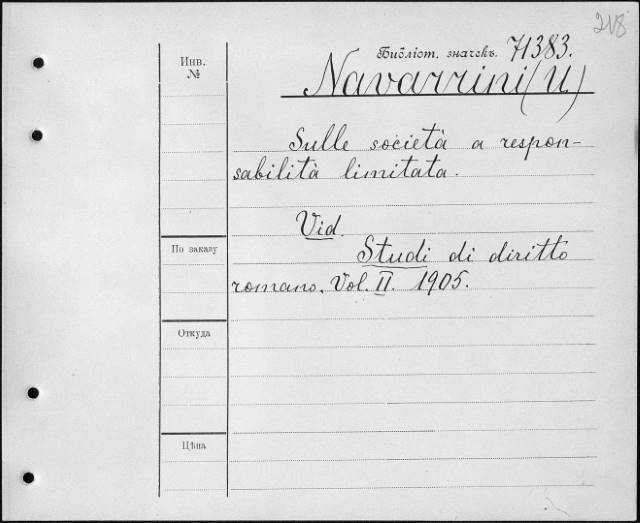 218
Библіот. значекъ. 71383.
Инв.
№
Navarrini (U.)
Sulle società a respon-
sabilità limitata.
Vid.
По заказу
Studi di diritto
romano. Vol. II. 1905.
Откуда
Цѣна